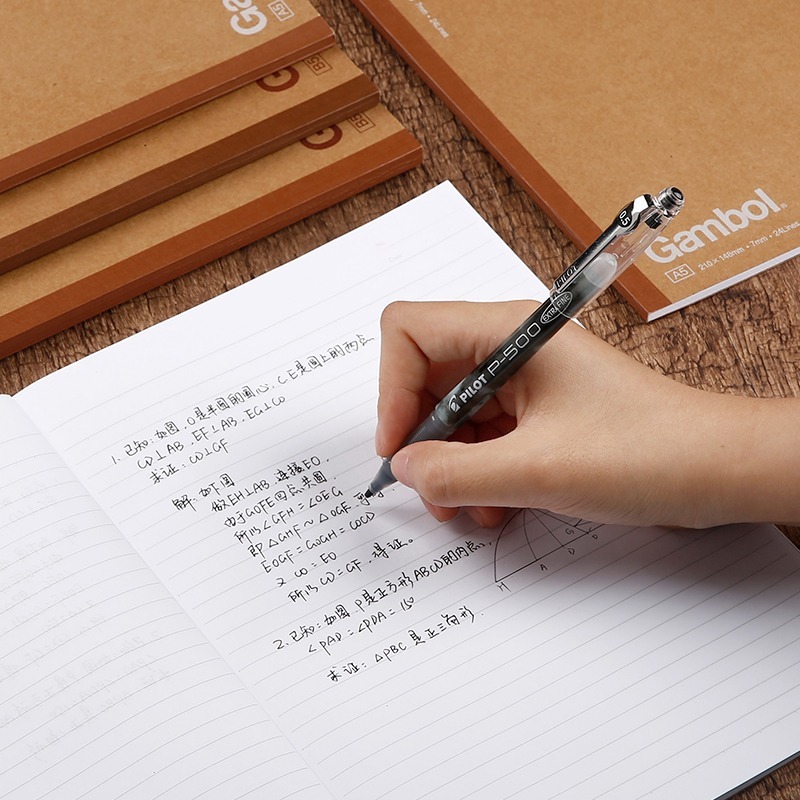 A5
B5
B5
7mm • 24Lines
Gambol
A5 210 × 148mm • 7mm • 24Lines
0.5
PILOT
PILOT P-500 EXTRA FINE
1. 已知:如图,O是半圆的圆心,C.E是圆上的两点
CD⊥AB.EF⊥AB.EG⊥CO
求证:CD⊥GF
解 如下图
做EH⊥AB 连接EO.
由于GOFE四点共圆.
所以∠GFH=∠OEG
即△GHF~△OGE.
EOGF=GOGH=COCD
又CO=EO
所以CD=GF.得证。
2.已知:如图.P是正方形ABCD的内点,
∠PAD=∠PDA=15
求证:△PBC是正三角形.
G
H A D D